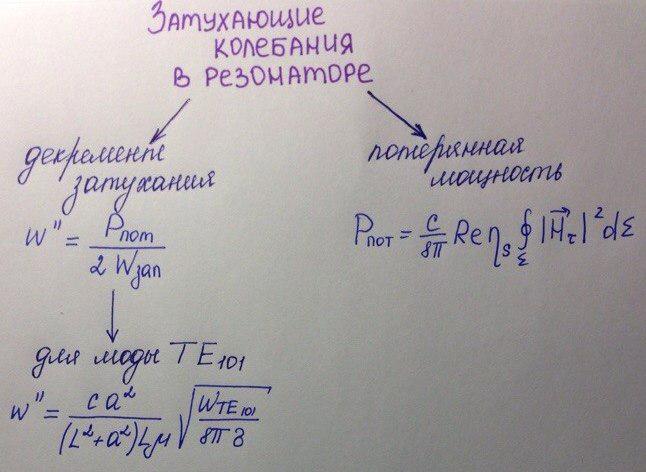 Затухающие
колебания
в резонаторе
декремент
затухания
w'' = Pпот / 2 Wзап
для моды TE₁₀₁
w'' = c a² / (L²+a²)Lμ √(w_TE₁₀₁ / 8π З)
потерянная
мощность
Pпот = c/8π Re η_s ∮_Σ |H⃗_τ|² dΣ